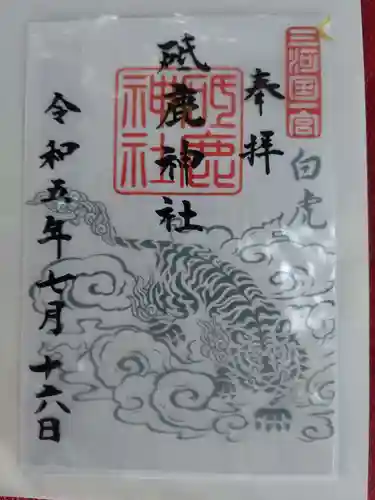 三河国一宮
奉拝
白虎
砥鹿神社
砥鹿神社
令和五年七月十六日